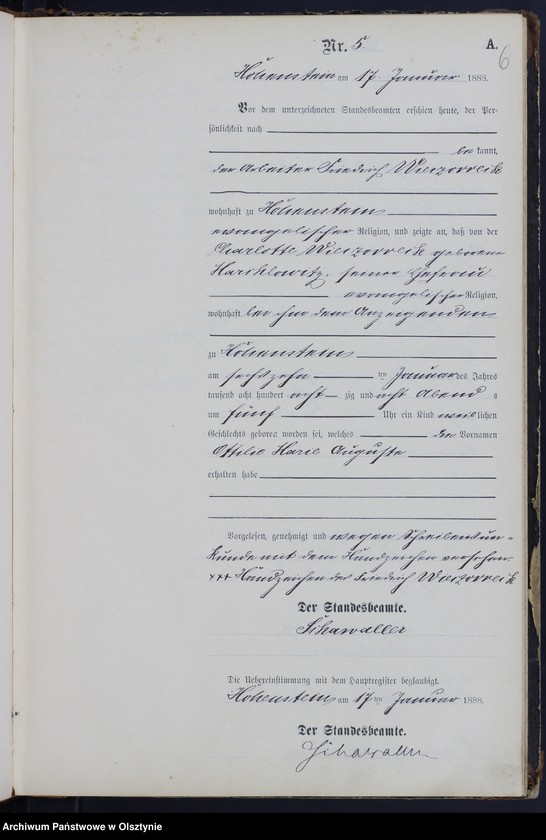 Nr. 5.
A.
6
Hohenstein am 17 Januar 1888.
Vor dem unterzeichneten Standesbeamten erschien heute, der Per-
sönlichkeit nach
be kannt,
der Arbeiter Friedrich Wieczorrek
wohnhaft zu Hohenstein
evangelischer Religion, und zeigte an, daß von der
Charlotte Wieczorrek geborene
seiner Ehefrau
evangelischer Religion,
wohnhaft bei ihm dem Anzeigenden
zu Hohenstein
am sechszehn ten Januar des Jahres
tausend acht hundert acht zig und acht Abend s
um fünf Uhr ein Kind weib lichen
Geschlechts geboren worden sei, welches die Vornamen
Ottilie Marie Auguste
erhalten habe
Vorgelesen, genehmigt und wegen Schreibensun-
kunde mit dem Handzeichen versehen.
+++ Handzeichen des Friedrich Wieczorrek
Der Standesbeamte.
Die Uebereinstimmung mit dem Hauptregister beglaubigt.
Hohenstein am 17ten Januar 1888.
Der Standesbeamte.
Archiwum Państwowe w Olsztynie